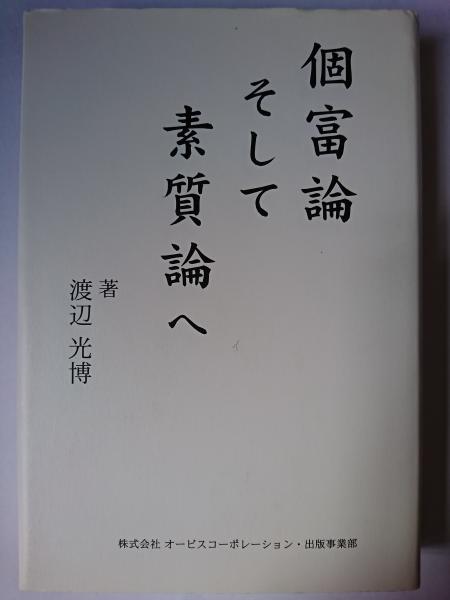 個富論
そして
素質論へ
著
渡辺 光博
株式会社 オービスコーポレーション・出版事業部